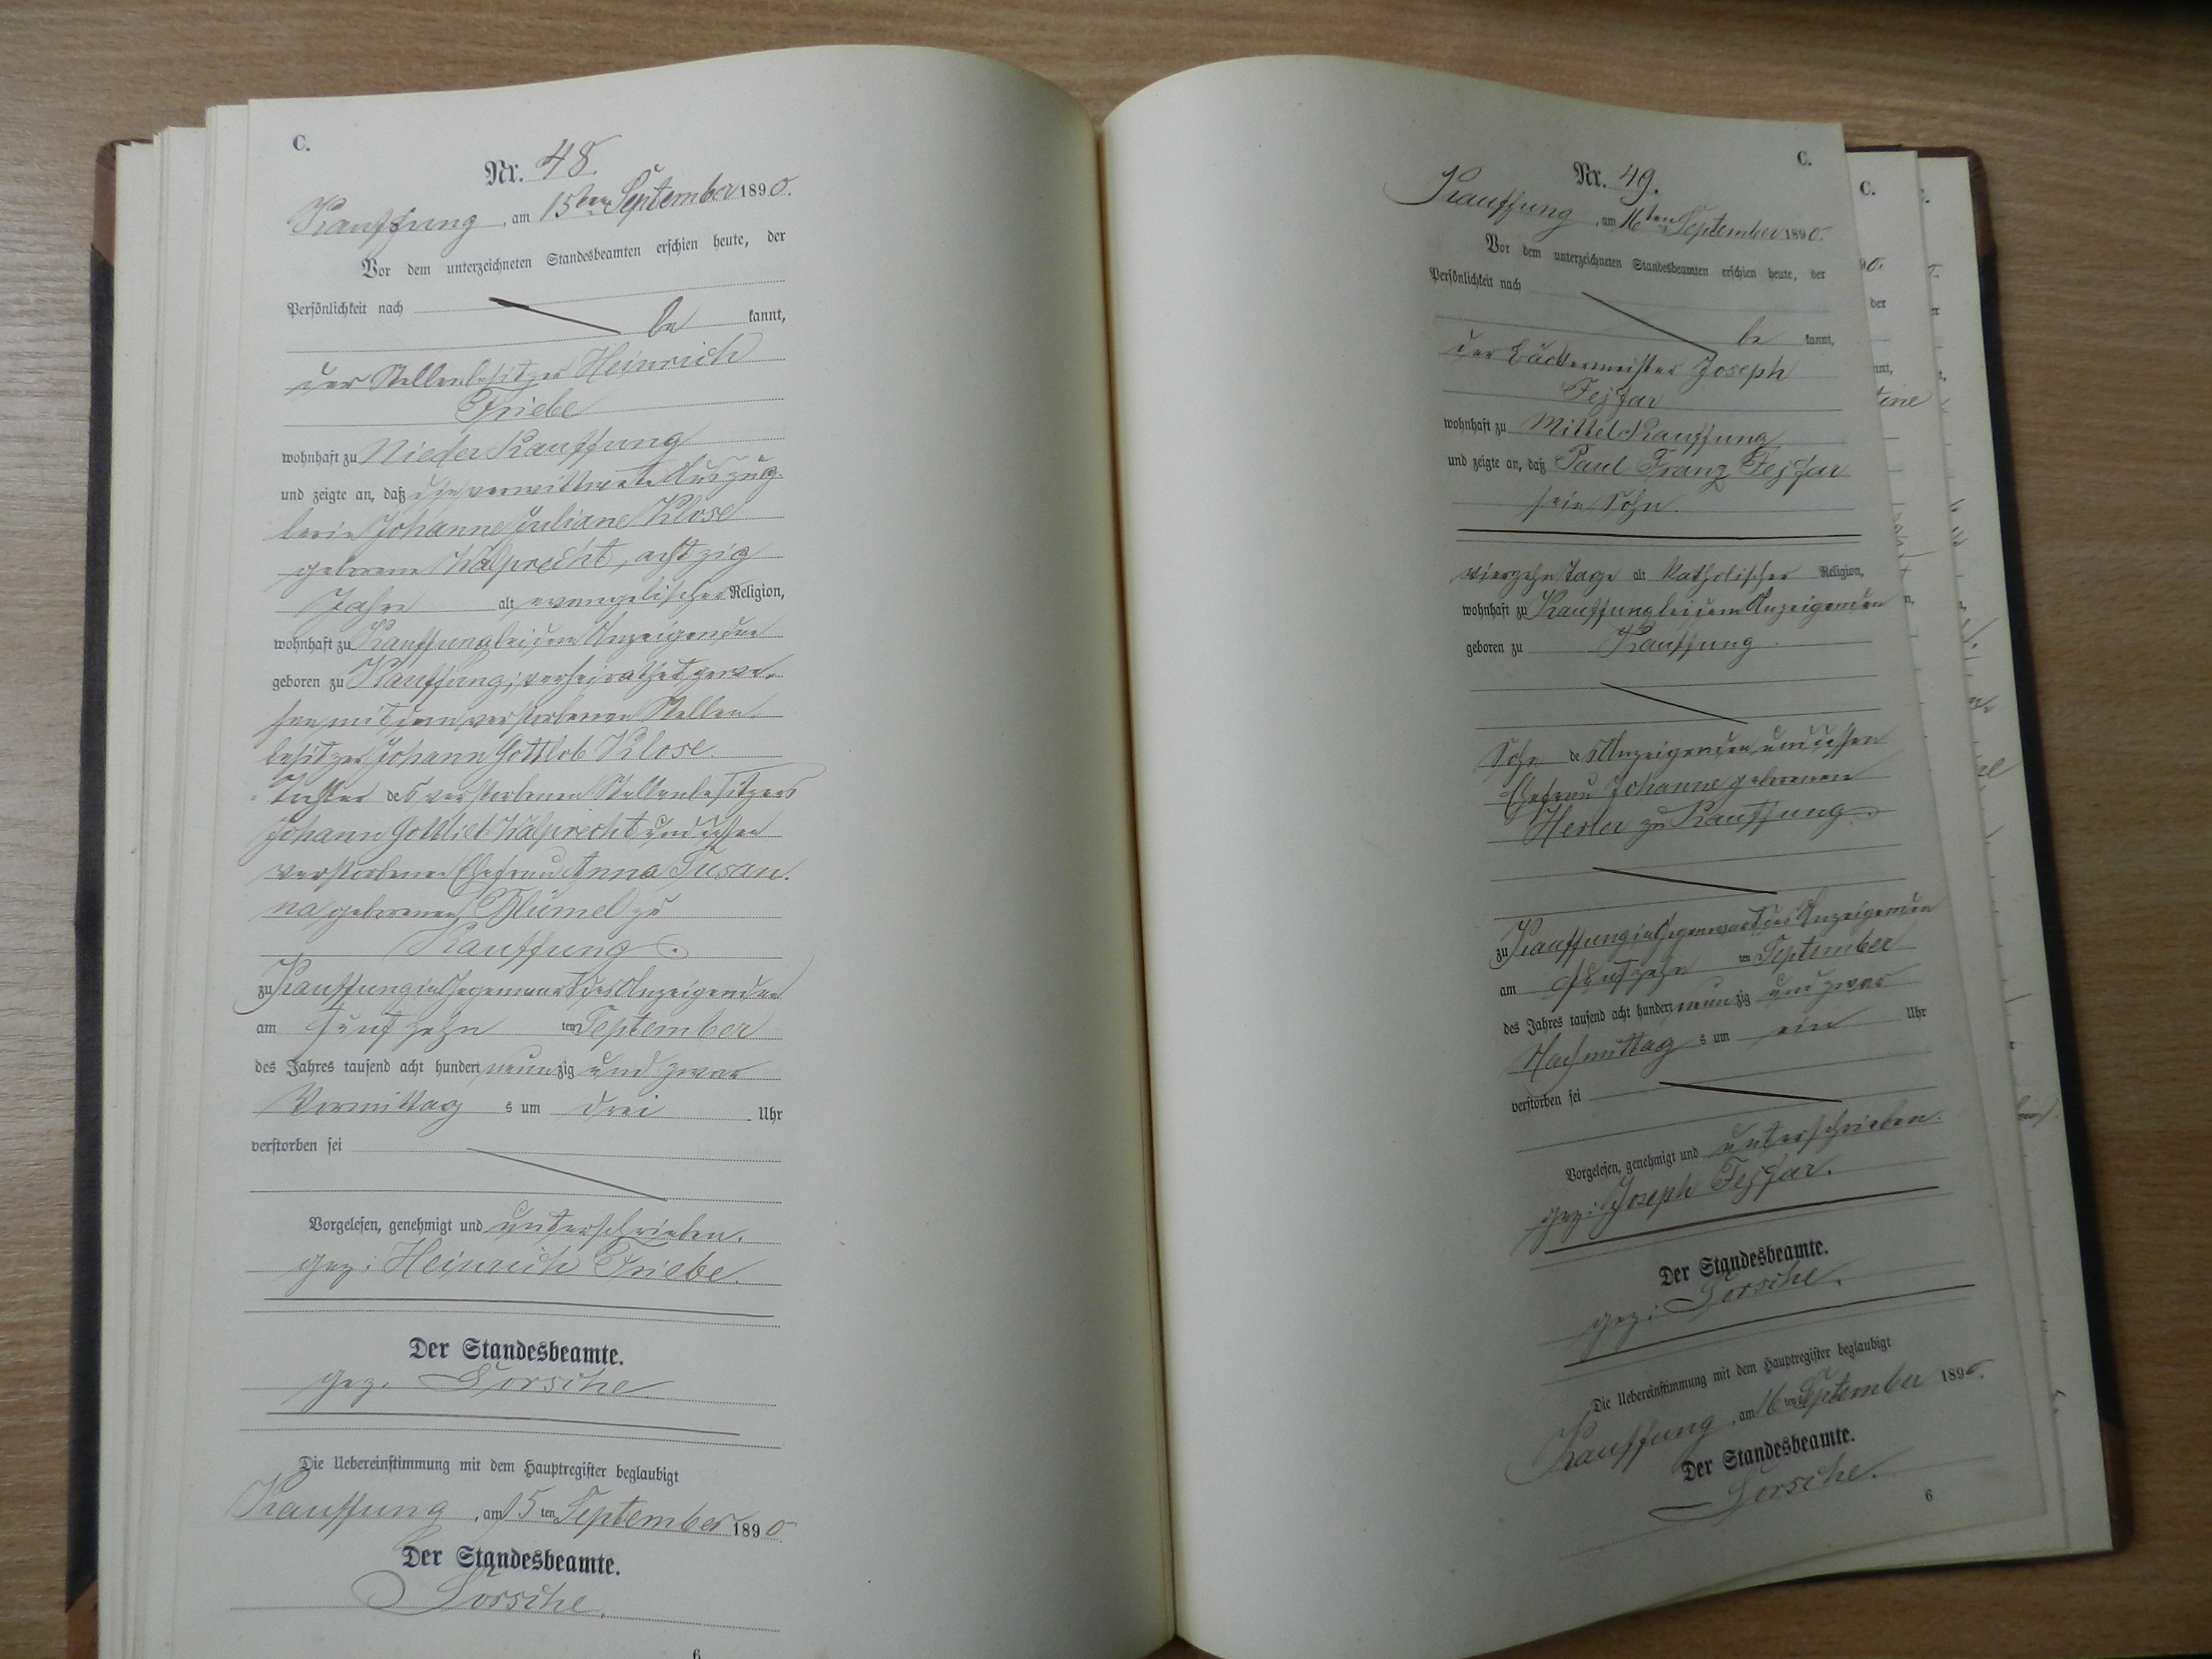 C.
Nr. 48.
Kauffung, am 15ten September 1890.
Vor dem unterzeichneten Standesbeamten erschien heute, der
Persönlichkeit nach
be kannt,
der Stellenbesitzer Heinrich
Friebe
wohnhaft zu Nieder Kauffung
und zeigte an, daß die verwittwete Auszüg-
lerin Johanne Juliane Klose
geborene Kälprecht, achtzig
Jahre alt, evangelischer Religion,
wohnhaft zu Kauffung bei dem Anzeigenden
geboren zu Kauffung, verheirathet gewe-
sen mit dem verstorbenen Stellen-
besitzer Johann Gottlob Klose.
Tochter des verstorbenen Stellenbesitzers
Johann Gottlieb Kälprecht und dessen
verstorbenen Ehefrau Anna Susan-
na geborenen Blümel zu
Kauffung.
zu Kauffung in Gegenwart des Anzeigenden
am fünfzehn ten September
des Jahres tausend acht hundert neunzig und zwar
Vormittag s um drei Uhr
verstorben sei
Vorgelesen, genehmigt und unterschrieben.
gez: Heinrich Friebe.
Der Standesbeamte.
gez. Sorsche
Die Uebereinstimmung mit dem Hauptregister beglaubigt
Kauffung, am 15 ten September 1890
Der Standesbeamte.
Sorsche.
6
C.
Nr. 49.
Kauffung, am 16ten September 1890.
Vor dem unterzeichneten Standesbeamten erschien heute, der
Persönlichkeit nach
be kannt,
der Bäckermeister Joseph
Fejfar
wohnhaft zu Mittel Kauffung
und zeigte an, daß Paul Franz Fejfar
sein Sohn.
vierzehn Tage alt katholischer Religion,
wohnhaft zu Kauffung bei dem Anzeigenden
geboren zu Kauffung
Sohn des Anzeigenden und dessen
Ehefrau Johanne geborenen
zu Kauffung.
zu Kauffung in Gegenwart des Anzeigenden
am fünfzehn ten September
des Jahres tausend acht hundert neunzig und zwar
Nachmittag s um ein Uhr
verstorben sei
Vorgelesen, genehmigt und unterschrieben.
gez: Joseph Fejfar.
Der Standesbeamte.
gez: Sorsche.
Die Uebereinstimmung mit dem Hauptregister beglaubigt
Kauffung, am 16 ten September 1890.
Der Standesbeamte.
Sorsche.
6
C.